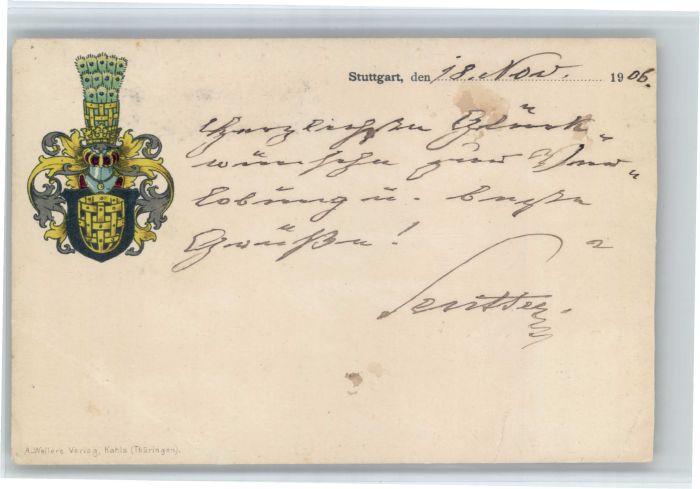 Stuttgart, den 18. Nov. 1906.
Herzlichsten Glück„
wünsche zur Ver„
lobung u. beste
Grüße!
Seutter.
A. Wellers Verlag, Kahla (Thüringen).